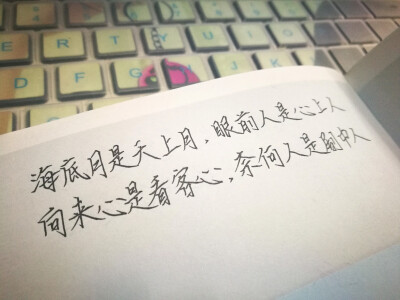 E R T Y U I
D F G J K
海底月是天上月，眼前人是心上人
向来心是看客心，奈何人是剧中人